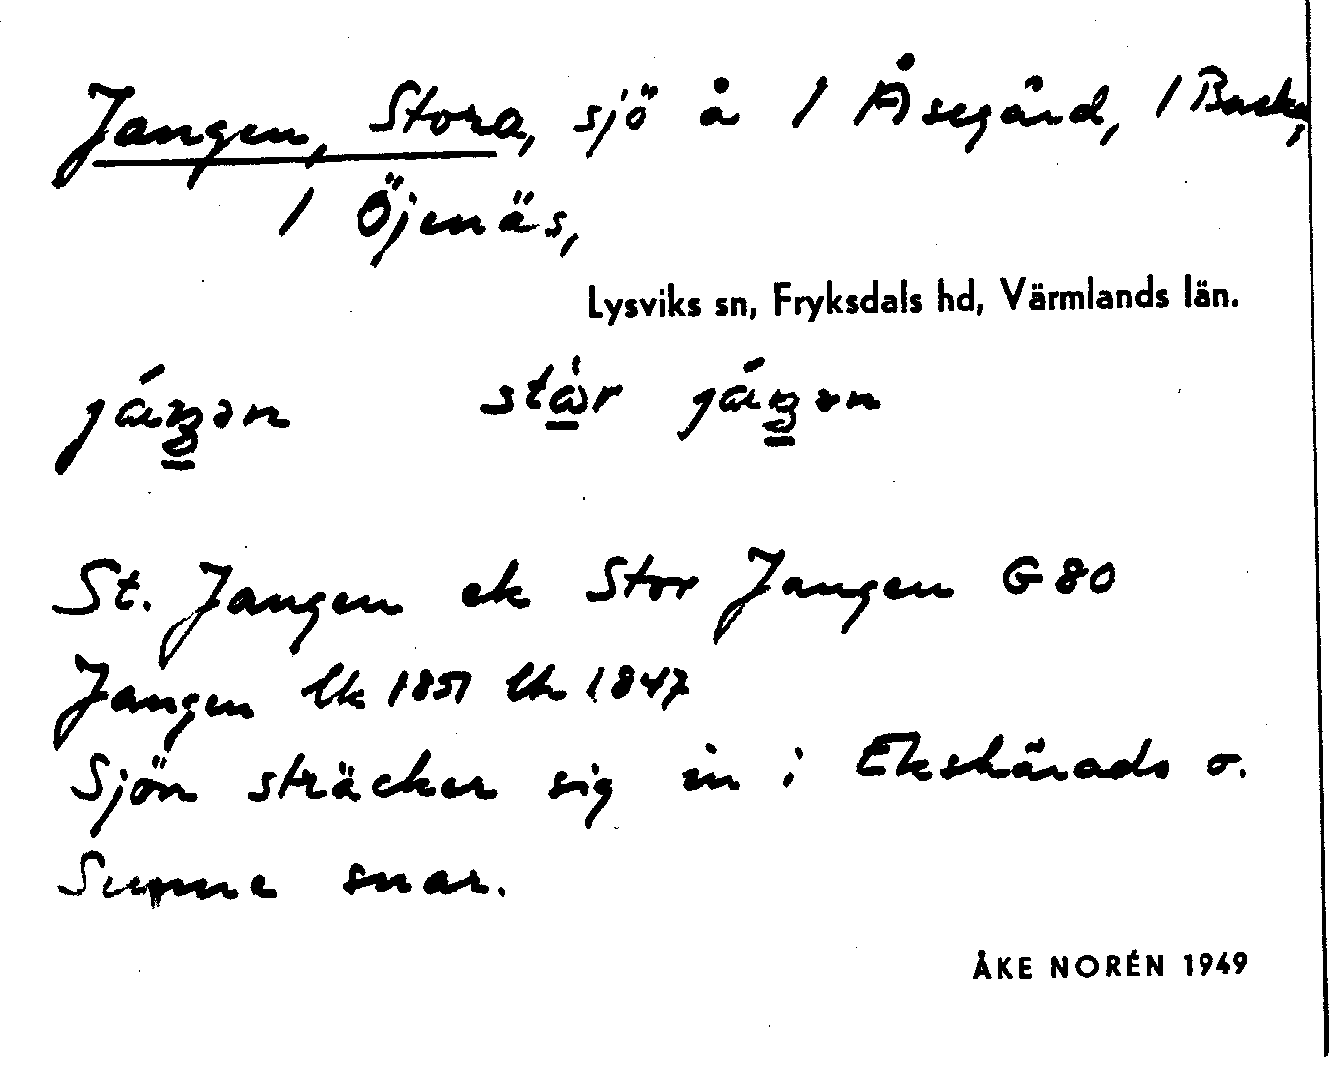 Jangen, Stora, sjö å 1 Åsegård, 1 Backa,
1 Öjenäs,
Lysviks sn, Fryksdals hd, Värmlands län.
St. Jangen ek Stor Jangen G 80
Jangen lk 1851 lk 1847
Sjön sträcker sig in i Ekshärads o.
Sunne snar.
ÅKE NORÉN 1949